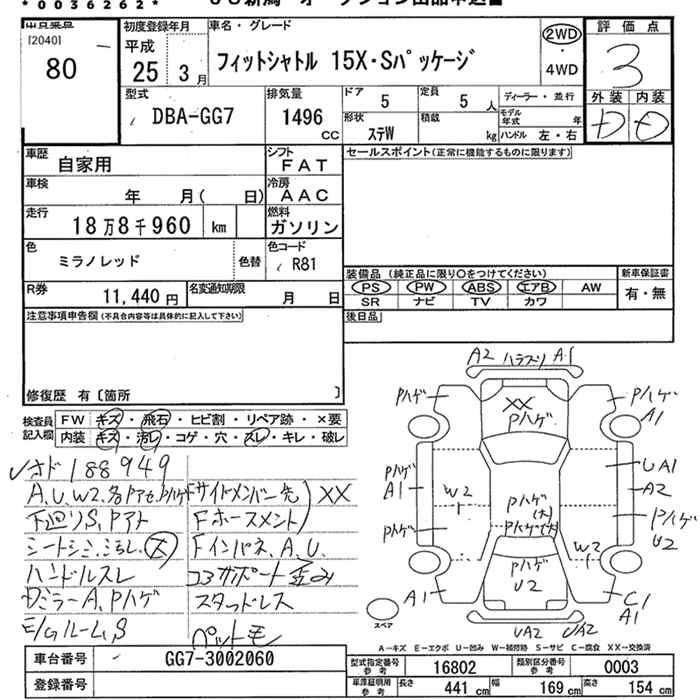 *0036262*
[2040]
80
初度登録年月
平成
25 3 月
車名・グレード
フィットシャトル 15X・Sパッケージ
2WD
・
4WD
評価点
3
外装 内装
D D
型式
DBA-GG7
排気量
1496
CC
ドア
5
定員
5 人
ディーラー・並行
形状
ステW
積載
kg
モデル
年式
年
ハンドル 左・右
車歴
自家用
シフト
FAT
セールスポイント(正常に機能するものに限ります)
車検
年 月( 日)
冷房
AAC
走行
18万8千960 km
燃料
ガソリン
色
ミラノレッド
色替
色コード
R81
R券
11,440 円
名変通知期限
月 日
装備品(純正品に限り○をつけてください)
PS PW ABS エアB AW
SR ナビ TV カワ
新車保証書
有・無
注意事項申告欄(不具合内容等は具体的に記入して下さい)
後日品
修復歴 有〔箇所 〕
検査員
記入欄
FW キズ・飛石・ヒビ割・リペア跡・×要
内装 キズ・汚レ・コゲ・穴・スレ・キレ・破レ
188949
A.U.W2.各ドアセ.Pハゲ
下廻りS、Pアト
シートシミ、汚れ、大
ハンドルスレ
ドミラーA、Pハゲ
E/gルームS
Fサイドメンバー先 XX
Fホースメント
Fインパネ、A、U、
コアサポート歪み
スタッドレス
ペット毛
A2 ハラズリ A1
Pハゲ
XX
Pハゲ
Pハゲ
A1
Pハゲ
A1
W2
Pハゲ
(大)
Pハゲ(大)
UA1
A2
Pハゲ
U2
Pハゲ
W2
Pハゲ
U2
A1
C1
A1
UA2
UA2
スペア
A-キズ E-エクボ U-凹み W-補修跡 S-サビ C-腐食 XX-交換済
車台番号
GG7-3002060
登録番号
型式指定番号
参考
16802
類別区分番号
参考
0003
車庫証明用
参考
長さ
441 cm
幅
169 cm
高さ
154 cm